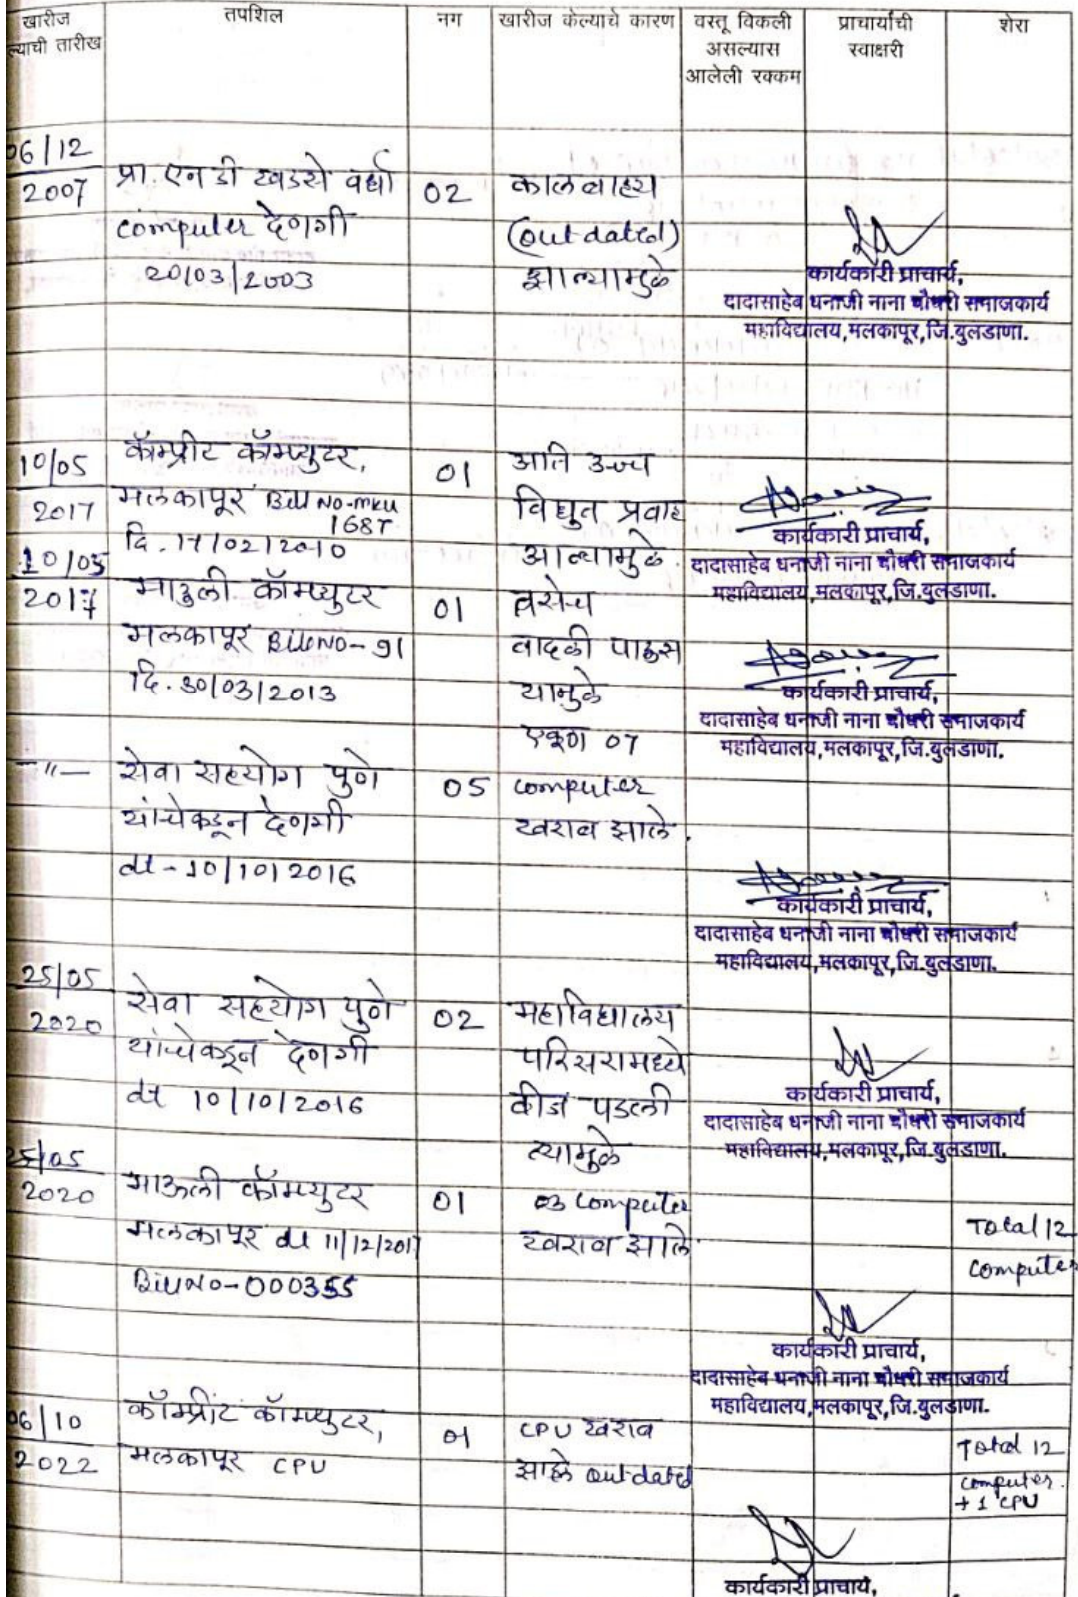 खारीज
ल्याची तारीख
तपशिल
नग
खारीज केल्याचे कारण
वस्तू विकली
असल्यास
आलेली रक्कम
प्राचार्यांची
स्वाक्षरी
शेरा
06/12
2007
प्रा. एन डी खडसे वर्धा
computer देणगी
20/03/2003
02
कालबाह्य
(outdated)
झाल्यामुळे
कार्यकारी प्राचार्य,
दादासाहेब धनाजी नाना चौधरी समाजकार्य
महाविद्यालय,मलकापूर,जि.बुलडाणा.
10/05
2017
कॉम्प्रीट कॉम्प्युटर,
मलकापूर Bill No-mku
1687
दि. 17/02/2010
01
अति उच्च
विद्युत प्रवाह
आल्यामुळे
कार्यकारी प्राचार्य,
दादासाहेब धनाजी नाना चौधरी समाजकार्य
महाविद्यालय,मलकापूर,जि.बुलडाणा.
10/05
2017
माउली कॉम्प्युटर
मलकापूर Bill NO-91
दि. 30/03/2013
01
तसेच
वादळी पाऊस
यामुळे
एकूण 07
कार्यकारी प्राचार्य,
दादासाहेब धनाजी नाना चौधरी समाजकार्य
महाविद्यालय,मलकापूर,जि.बुलडाणा.
—"—
सेवा सहयोग पुणे
यांचेकडून देणगी
dt - 10/10/2016
05
computer
खराब झाले.
कार्यकारी प्राचार्य,
दादासाहेब धनाजी नाना चौधरी समाजकार्य
महाविद्यालय,मलकापूर,जि.बुलडाणा.
25/05
2020
सेवा सहयोग पुणे
यांचेकडून देणगी
dt 10/10/2016
02
महाविद्यालय
परिसरामध्ये
वीज पडली
त्यामुळे
कार्यकारी प्राचार्य,
दादासाहेब धनाजी नाना चौधरी समाजकार्य
महाविद्यालय,मलकापूर,जि.बुलडाणा.
25/05
2020
माऊली कॉम्प्युटर
मलकापूर dt 11/12/2017
Bill No-000355
01
03 Computer
खराब झाले
Total 12
Computer
कार्यकारी प्राचार्य,
दादासाहेब धनाजी नाना चौधरी समाजकार्य
महाविद्यालय,मलकापूर,जि.बुलडाणा.
06/10
2022
कॉम्प्रींट कॉम्प्युटर,
मलकापूर CPU
01
CPU खराब
झाले outdated
Total 12
computer.
+ 1 CPU
कार्यकारी प्राचार्य,